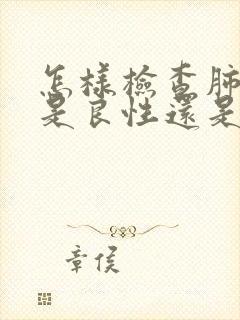 怎樣檢查肺
是良性還是
章侯